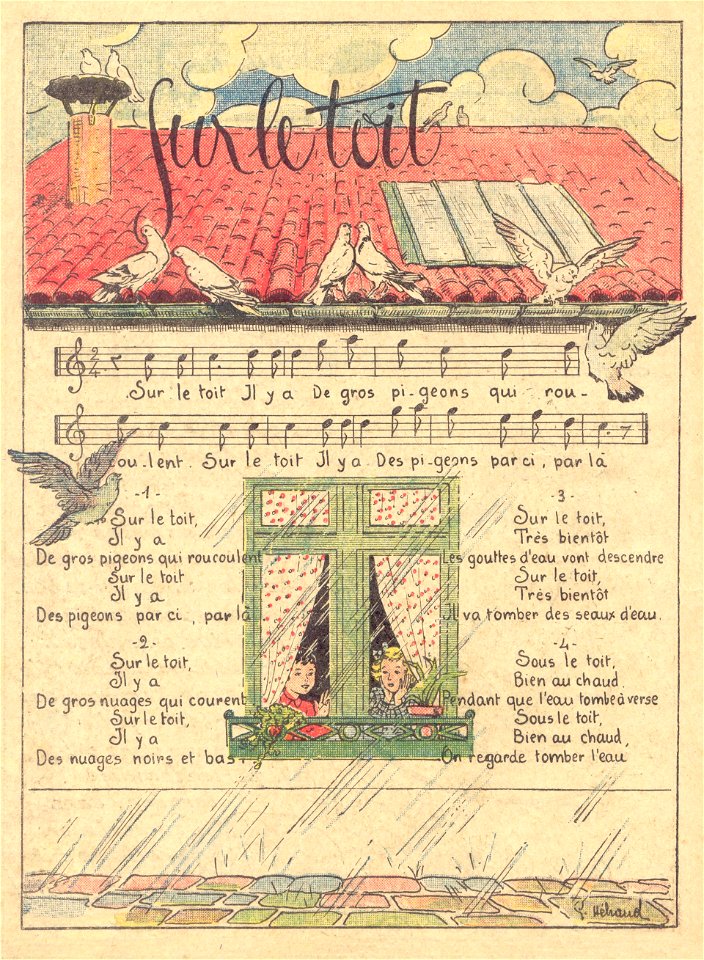 Sur le toit
Sur le toit Il y a De gros pi-geons qui rou-
cou-lent. Sur le toit Il y a Des pi-geons par ci, par là
-1-
Sur le toit,
Il y a
De gros pigeons qui roucoulent
Sur le toit
Il y a
Des pigeons par ci, par là
-2-
Sur le toit,
Il y a
De gros nuages qui courent
Sur le toit,
Il y a
Des nuages noirs et bas.
-3-
Sur le toit,
Très bientôt
Les gouttes d'eau vont descendre
Sur le toit,
Très bientôt
Il va tomber des seaux d'eau.
-4-
Sous le toit,
Bien au chaud
Pendant que l'eau tombe à verse
Sous le toit,
Bien au chaud,
On regarde tomber l'eau